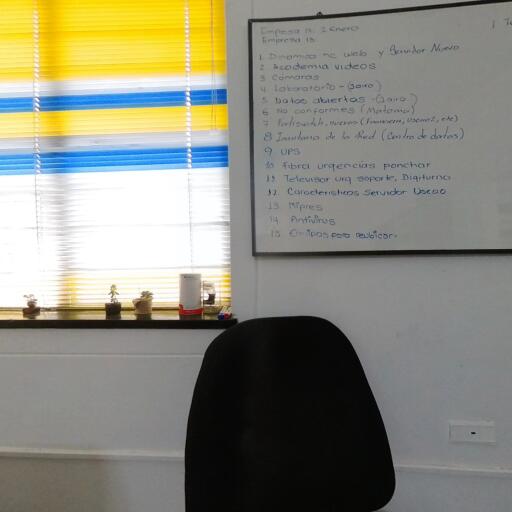 Empresa 12: 2 Enero
Empresa 13:
1. Dinamica nc web y Servidor Nuevo
2 Academia videos
3 Cámaras
4 Laboratorio - (Jairo)
5 Datos abiertos - (Jairo)
6 No conformes (Matoma)
7 nuevos (Financiera, etc)
8 de la Red (Centro de datos)
9 UPS
10 Fibra urgencias ponchar
11. Televisor urg soporte, Digiturno
12 Caracteristicas Servidor
13 Mipres
14 Antivirus
15 Equipos para reubicar.
1